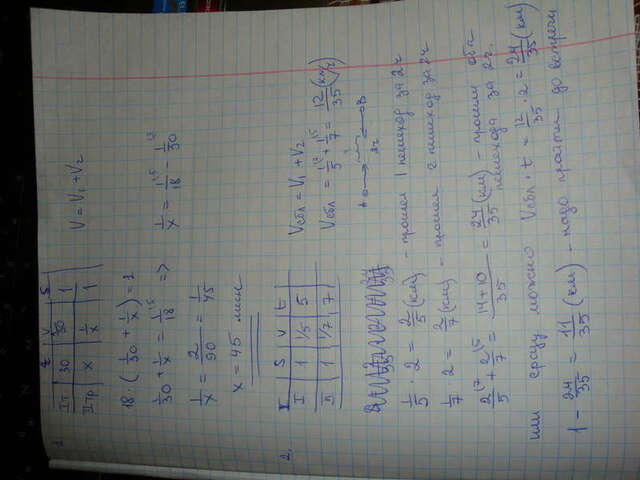 1.
t V S
I тр 30 1/30 1
II тр x 1/x 1
V = V₁ + V₂
18 (1/30 + 1/x) = 1
1/30 + 1/x = 1/18 => 1/x = 1/18 - 1/30
1/x = 2/90 = 1/45
x = 45 мин
2.
S V t
I 1 1/5 5
II 1 1/7 7
Vсбл = V₁ + V₂
Vсбл = 1/5 + 1/7 = 12/35 (км/ч)
A B
2ч
1/5 · 2 = 2/5 (км) - прошел 1 пешеход за 2ч
1/7 · 2 = 2/7 (км) - прошел 2 пешеход за 2ч
2/5 + 2/7 = 14+10/35 = 24/35 (км) - прошли оба пешехода за 2ч.
или сразу можно Vсбл · t = 12/35 · 2 = 24/35 (км)
1 - 24/35 = 11/35 (км) - надо пройти до встречи